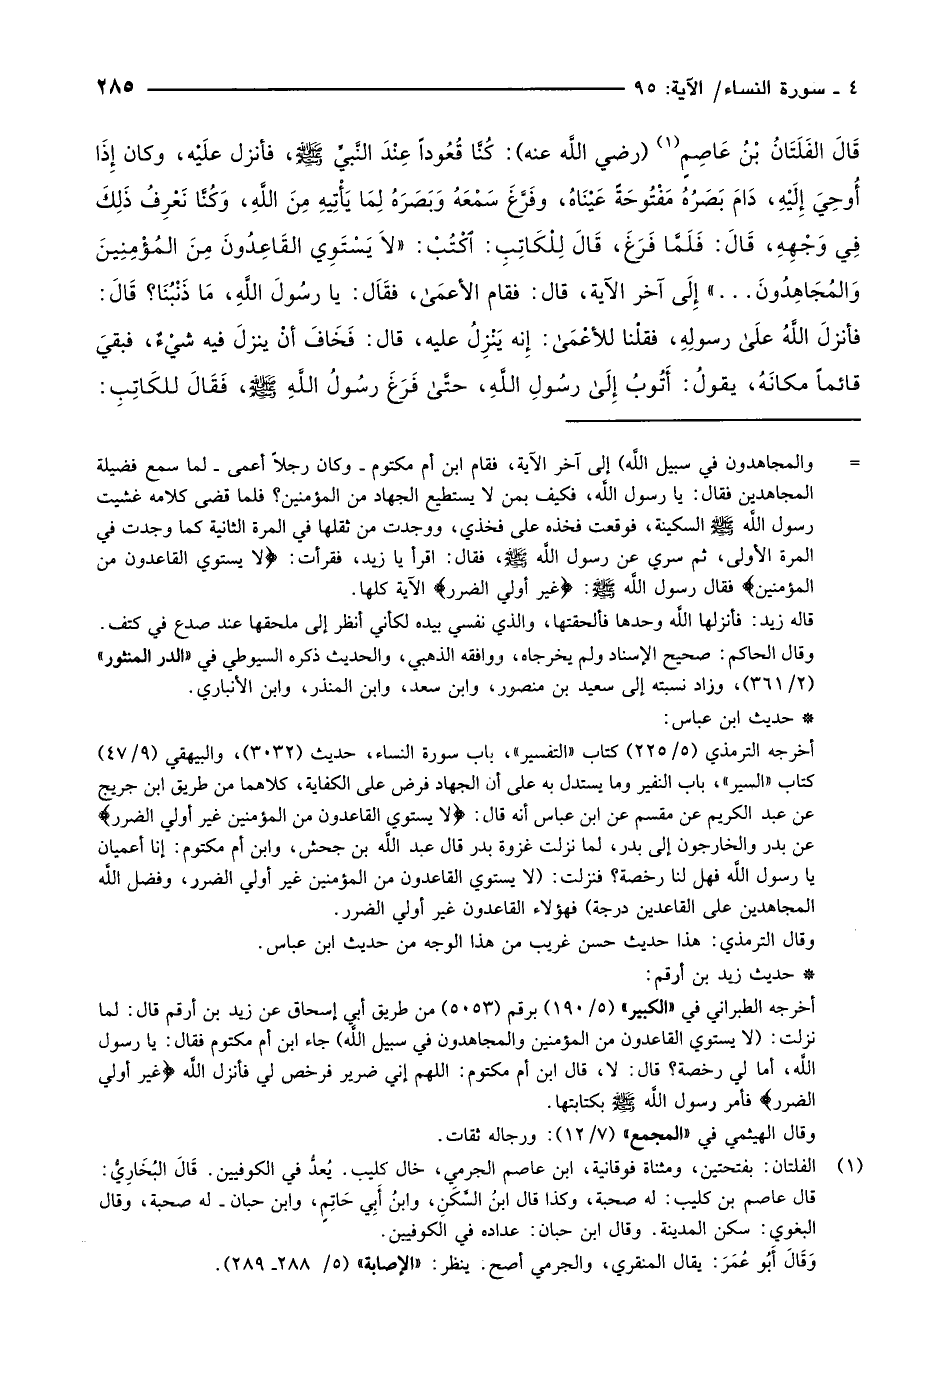 ٤ ـ سورة النساء/ الآية: ٩٥ ٢٨٥
قَالَ الفَلَتَانُ بْنُ عَاصِمٍ(١) (رضي اللَّه عنه): كُنَّا قُعُوداً عِنْدَ النَّبيِّ ﷺ، فأنزل علَيْه، وكان إِذَا
أُوحِيَ إِلَيْهِ، دَامَ بَصَرُهُ مَفْتُوحَةً عَيْنَاهُ، وفَرَّغَ سَمْعَهُ وَبَصَرَهُ لِمَا يَأْتِيهِ مِنَ اللَّهِ، وَكُنَّا نَعْرِفُ ذَلِكَ
فِي وَجْهِهِ، قَالَ: فَلَمَّا فَرَغَ، قَالَ لِلْكَاتِبِ: ٱكْتُبْ: «لاَ يَسْتَوِي القَاعِدُونَ مِنَ المُؤْمِنِينَ
وَالمُجَاهِدُونَ...» إِلَى آخر الآية، قال: فقام الأعمَىٰ، فقَالَ: يا رسُولَ اللَّهِ، مَا ذَنْبُنَا؟ قَالَ:
فأنزلَ اللَّهُ علَىٰ رسولِهِ، فقلْنا للأعْمَىٰ: إِنه يَنْزِلُ عليه، قال: فَخَافَ أنْ ينزلَ فيه شيْءٌ، فبقيَ
قائماً مكانَهُ، يقولُ: أَتُوبُ إِلَىٰ رسُولِ اللَّهِ، حتَّىٰ فَرَغَ رسُولُ اللَّهِ ﷺ، فَقَالَ للكَاتِبِ:
= والمجاهدون في سبيل اللَّه) إلى آخر الآية، فقام ابن أم مكتوم ـ وكان رجلاً أعمى ـ لما سمع فضيلة
المجاهدين فقال: يا رسول اللَّه، فكيف بمن لا يستطيع الجهاد من المؤمنين؟ فلما قضى كلامه غشيت
رسول اللَّه ﷺ السكينة، فوقعت فخذه على فخذي، ووجدت من ثقلها في المرة الثانية كما وجدت في
المرة الأولى، ثم سري عن رسول اللَّه ﷺ، فقال: اقرأ يا زيد، فقرأت: ﴿لا يستوي القاعدون من
المؤمنين﴾ فقال رسول اللَّه ﷺ: ﴿غير أولي الضرر﴾ الآية كلها.
قاله زيد: فأنزلها اللَّه وحدها فألحقتها، والذي نفسي بيده لكأني أنظر إلى ملحقها عند صدع في كتف.
وقال الحاكم: صحيح الإسناد ولم يخرجاه، ووافقه الذهبي، والحديث ذكره السيوطي في «الدر المنثور»
(٣٦١/٢)، وزاد نسبته إلى سعيد بن منصور، وابن سعد، وابن المنذر، وابن الأنباري.
* حديث ابن عباس:
أخرجه الترمذي (٢٢٥/٥) كتاب «التفسير»، باب سورة النساء، حديث (٣٠٣٢)، والبيهقي (٤٧/٩)
كتاب «السير»، باب النفير وما يستدل به على أن الجهاد فرض على الكفاية، كلاهما من طريق ابن جريج
عن عبد الكريم عن مقسم عن ابن عباس أنه قال: ﴿لا يستوي القاعدون من المؤمنين غير أولي الضرر﴾
عن بدر والخارجون إلى بدر، لما نزلت غزوة بدر قال عبد اللَّه بن جحش، وابن أم مكتوم: إنا أعميان
يا رسول اللَّه فهل لنا رخصة؟ فنزلت: (لا يستوي القاعدون من المؤمنين غير أولي الضرر، وفضل اللَّه
المجاهدين على القاعدين درجة) فهؤلاء القاعدون غير أولي الضرر.
وقال الترمذي: هذا حديث حسن غريب من هذا الوجه من حديث ابن عباس.
* حديث زيد بن أرقم:
أخرجه الطبراني في «الكبير» (١٩٠/٥) برقم (٥٠٥٣) من طريق أبي إسحاق عن زيد بن أرقم قال: لما
نزلت: (لا يستوي القاعدون من المؤمنين والمجاهدون في سبيل اللَّه) جاء ابن أم مكتوم فقال: يا رسول
اللَّه، أما لي رخصة؟ قال: لا، قال ابن أم مكتوم: اللهم إني ضرير فرخص لي فأنزل اللَّه ﴿غير أولي
الضرر﴾ فأمر رسول اللَّه ﷺ بكتابتها.
وقال الهيثمي في «المجمع» (١٢/٧): ورجاله ثقات.
(١) الفلتان: بفتحتين، ومثناة فوقانية، ابن عاصم الجرمي، خال كليب. يُعدُّ في الكوفيين. قَالَ البُخَارِيُّ:
قال عاصم بن كليب: له صحبة، وكذا قال ابنُ السَّكَنِ، وابنُ أَبي حَاتِمٍ، وابن حبان ـ له صحبة، وقال
البغوي: سكن المدينة. وقال ابن حبان: عداده في الكوفيين.
وَقَالَ أَبُو عُمَرَ: يقال المنقري، والجرمي أصح. ينظر: «الإصابة» (٥/ ٢٨٨ـ ٢٨٩).